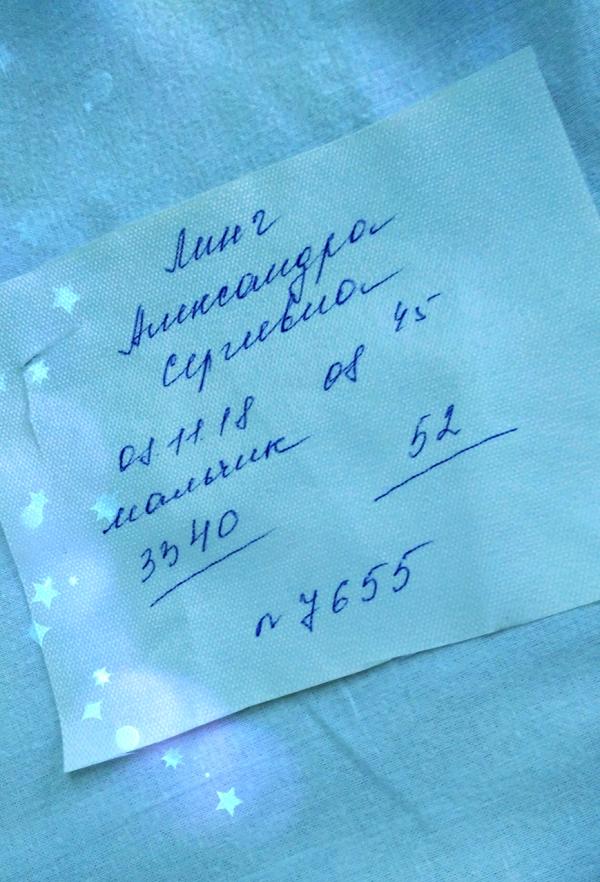 Линг
Александра
Сергеевна
08.11.18 08 45
мальчик 52
3340
№ 7655